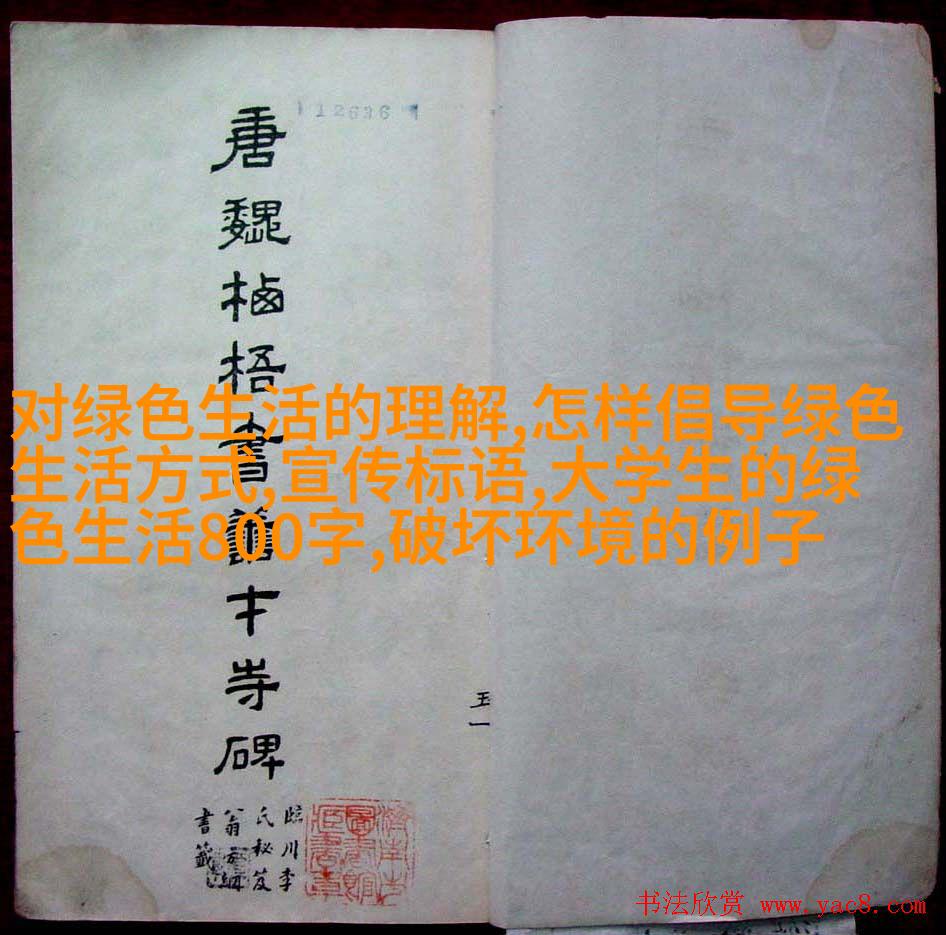 12636
唐魏栖梧書善才寺碑
对绿色生活的理解,怎样倡导绿色
生活方式,宣传标语,大学生的绿
色生活800字,破坏环境的例子
玉一
臨川李
氏秘笈
翁方綱
書籤
书法欣赏 www.yac8.com